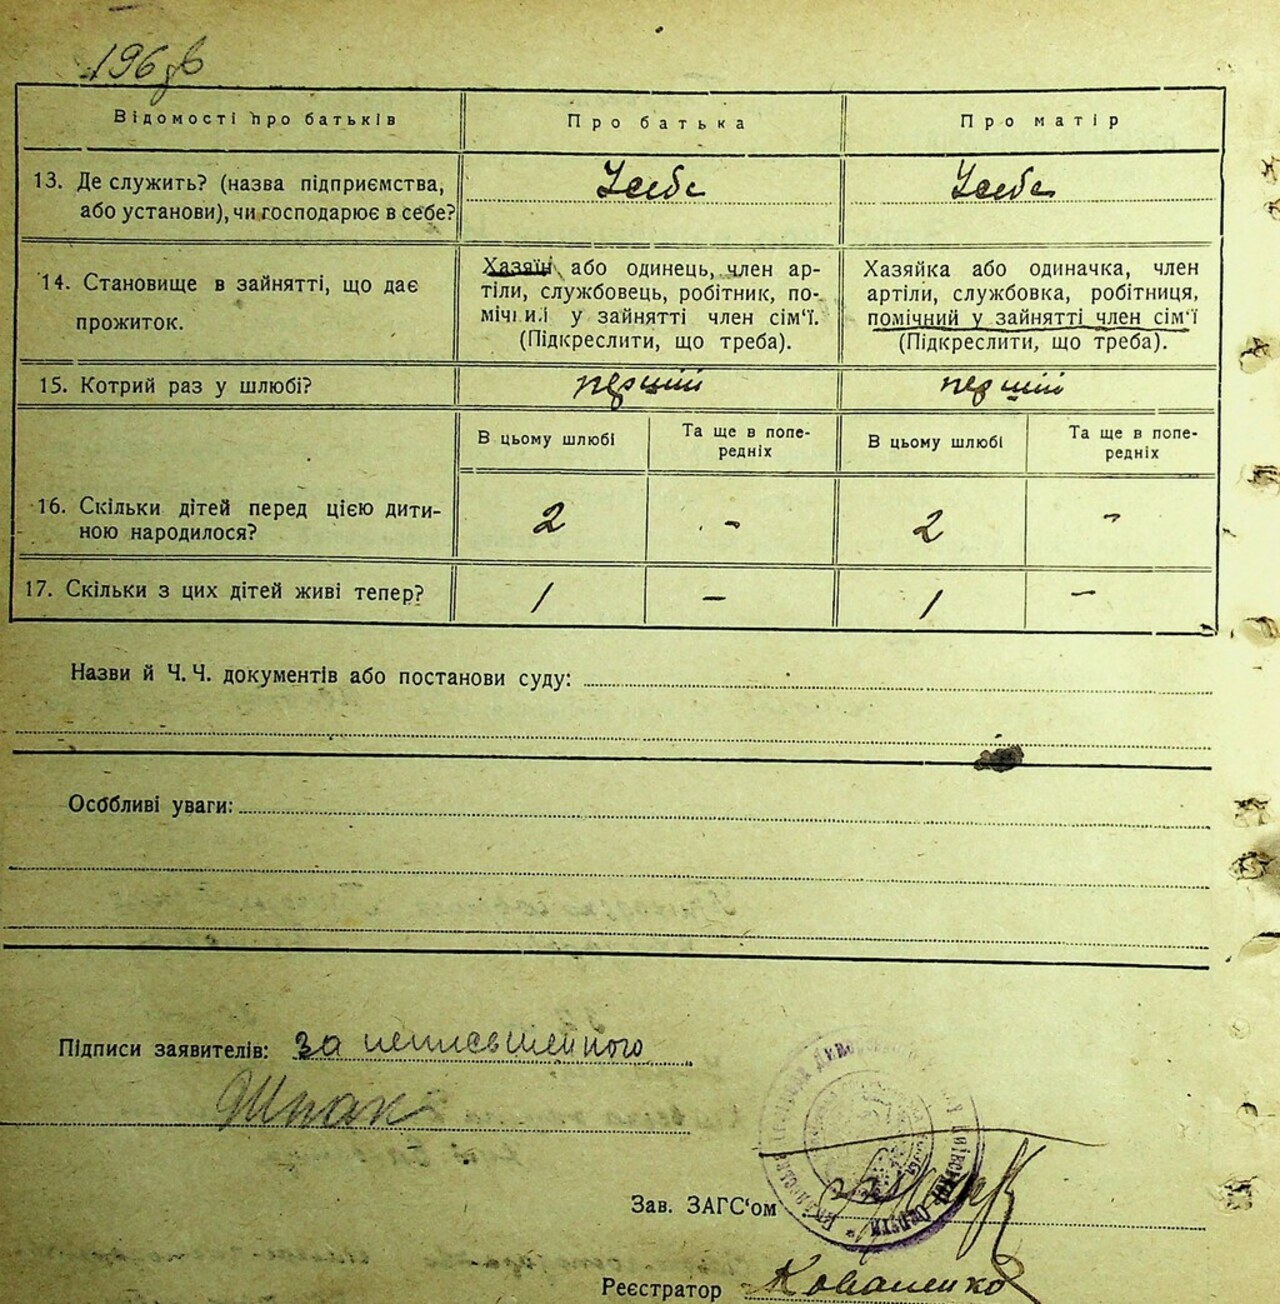 196 зв
Відомості про батьків
Про батька
Про матір
13. Де служить? (назва підприємства,
або установи), чи господарює в себе?
Усебе
Усебе
14. Становище в зайнятті, що дає
прожиток.
Хазяїн або одинець, член ар-
тіли, службовець, робітник, по-
мічний у зайнятті член сім'ї.
(Підкреслити, що треба).
Хазяйка або одиначка, член
артіли, службовка, робітниця,
помічний у зайнятті член сім'ї
(Підкреслити, що треба).
15. Котрий раз у шлюбі?
перший
перший
В цьому шлюбі
Та ще в попе-
редніх
В цьому шлюбі
Та ще в попе-
редніх
16. Скільки дітей перед цією дити-
ною народилося?
2
-
2
-
17. Скільки з цих дітей живі тепер?
1
-
1
-
Назви й Ч. Ч. документів або постанови суду:
Особливі уваги:
Підписи заявителів: за
Шпак
Зав. ЗАГС'ом
Реєстратор Коваленко